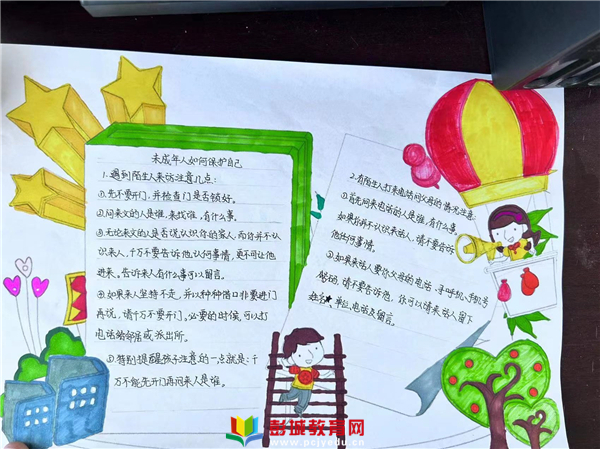 未成年人如何保护自己
1.遇到陌生人来访注意几点:
①先不要开门,并检查门是否锁好。
②问来人的人是谁,来找谁,有什么事。
③无论来人的人是否说认识你的家人,而你并不认
识来人,千万不要告诉他,认何事情,更不可让他
进来。告诉来人有什么事可以留言。
④如果来人坚持不走,并以种种借口非要进门
再说,请千万不要开门。必要的时候,可以打
电话给邻居或派出所。
①特别提醒孩子注意的一点就是:千
万不能先开门再问来人是谁。
2.有陌生人打来电话问父母的情况注意:
①首先问来电话的人是谁,有什么事。
如果你并不认识来话人,请不要告诉
他任何事情。
②如果来话人要你父母的电话、寻呼机、手机号
等号码,请不要告诉他,你可以请来话人留下
姓名,单位,电话及留言。
彭城教育网
www.pcjyedu.cn